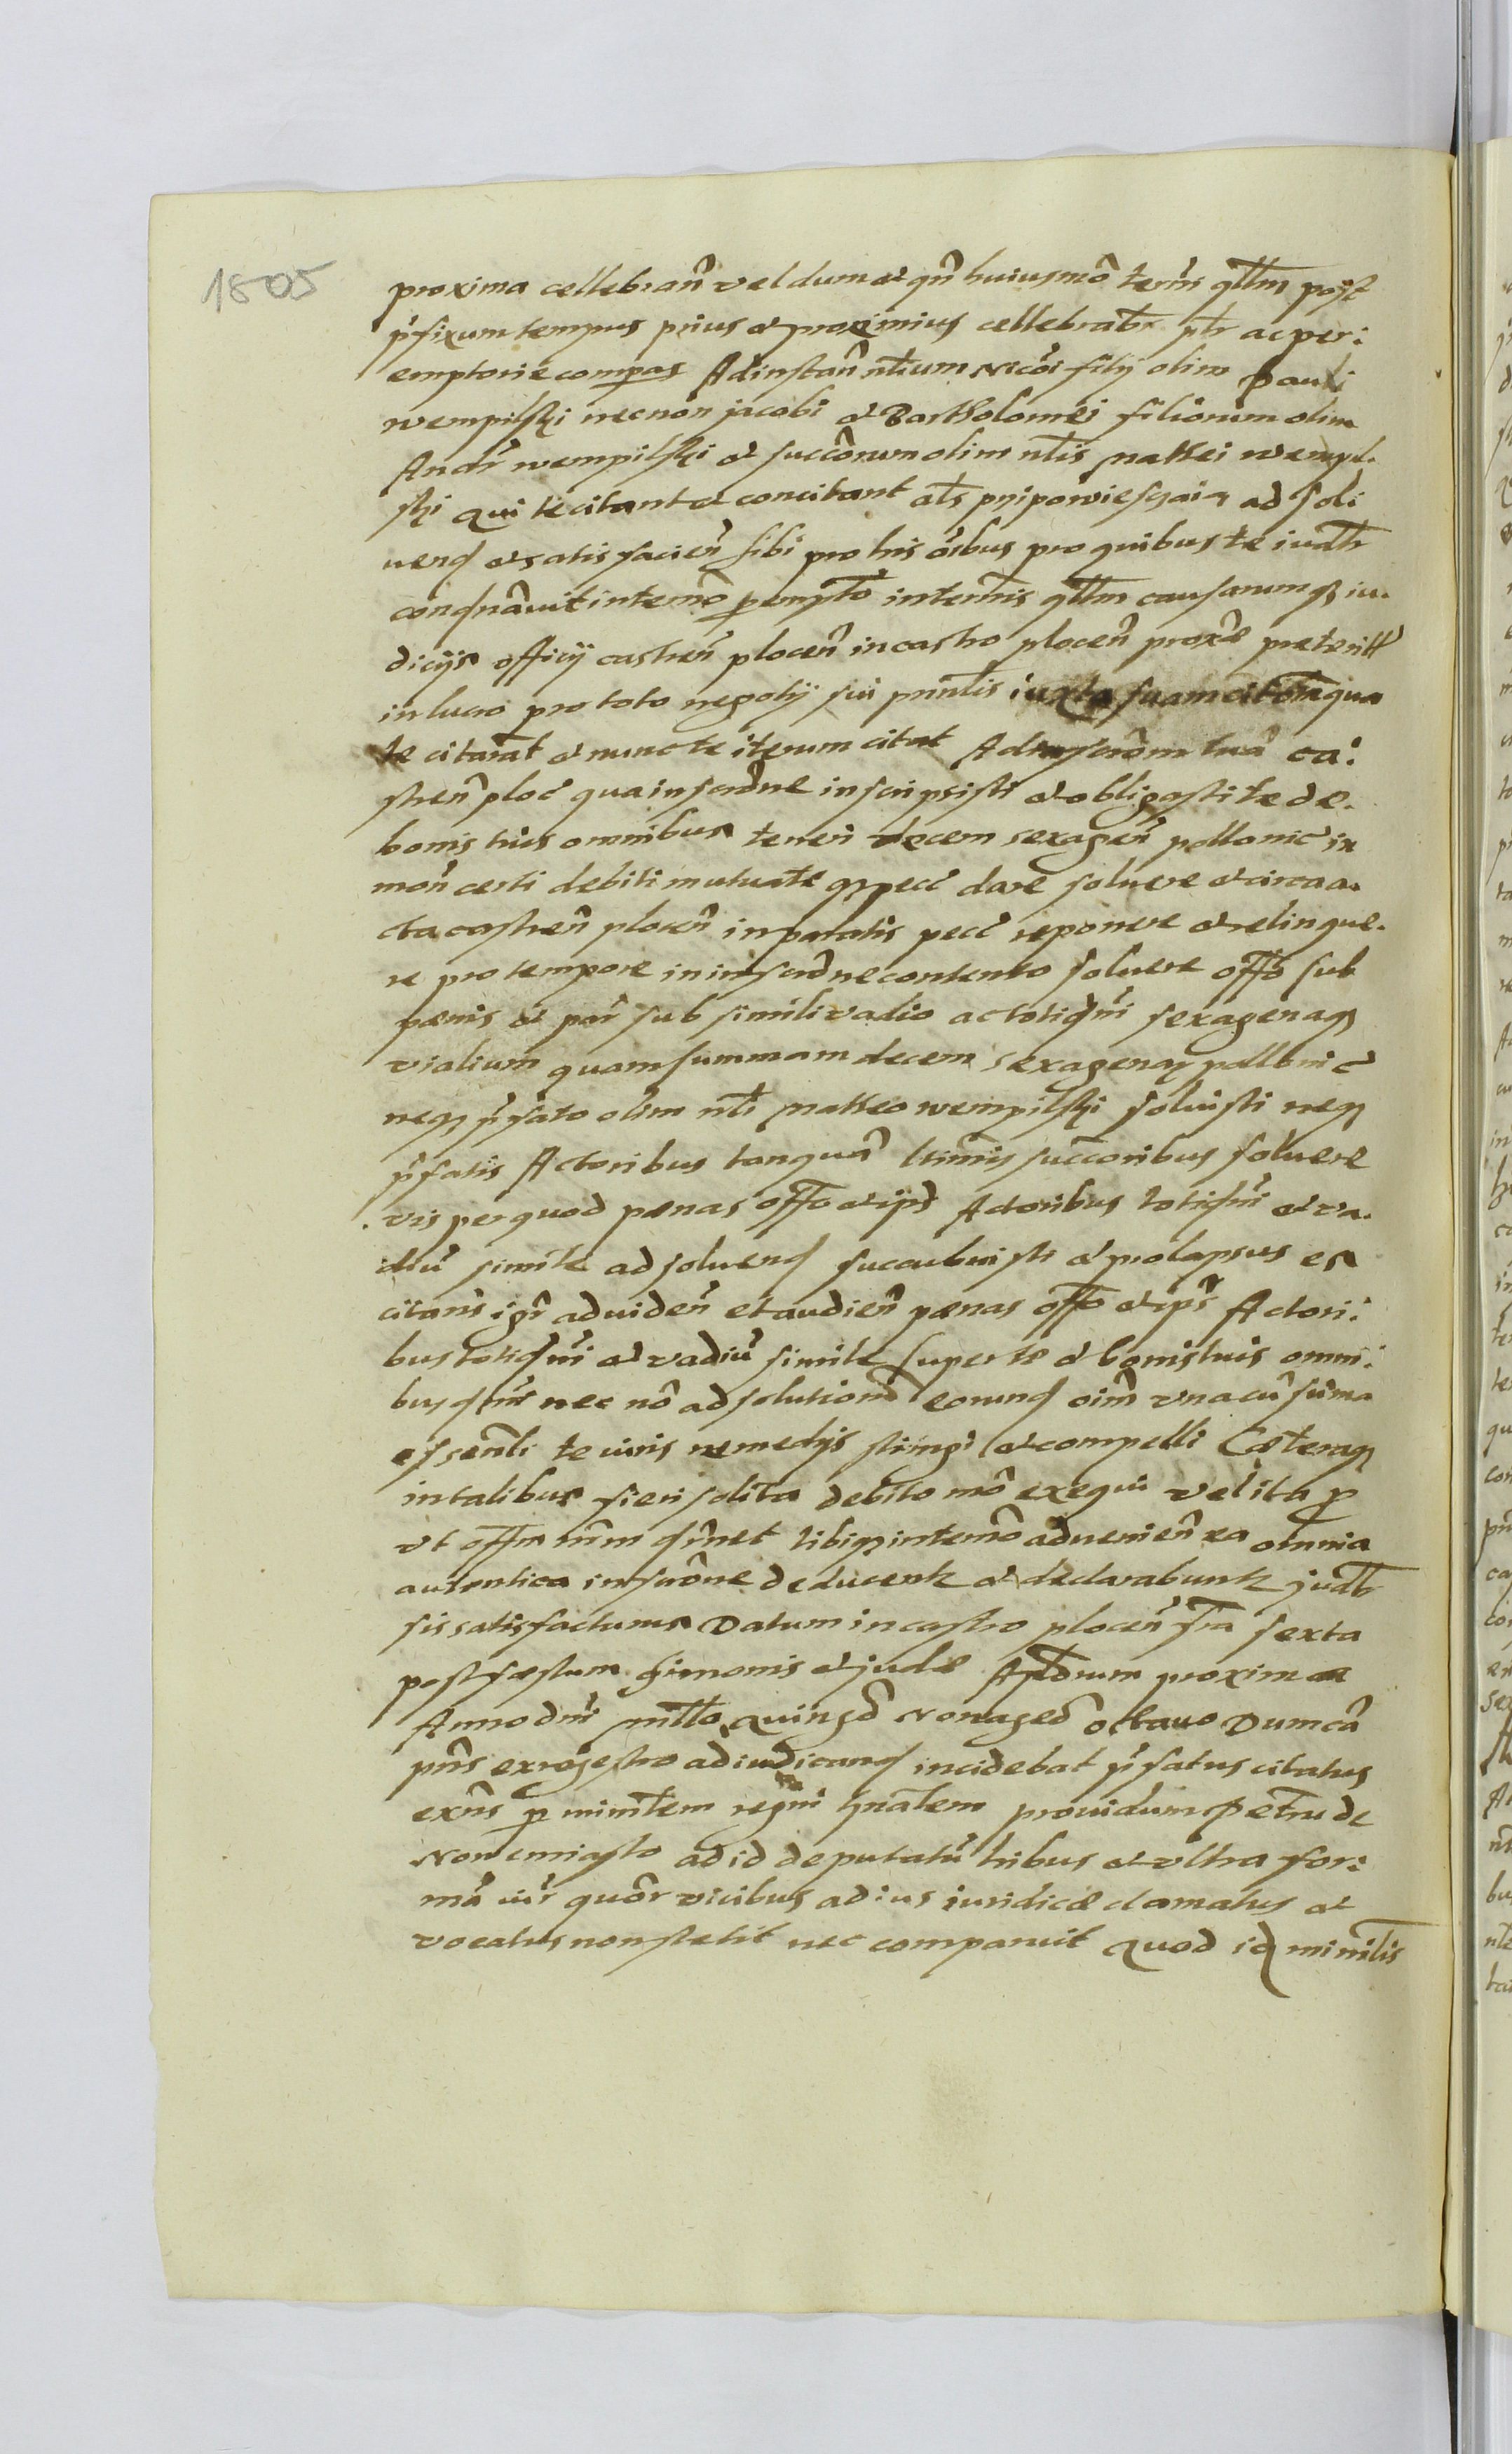 1805
proxima cellebrañ vel dum et qñ huiusmõ terñi qllm post
p̃fixum tempus prius et proximius cellebrabr̃ ptr̃ ac per:
emptorie compas Ad instañ nt̃ium Nicõi filij olim Pauli
wempilski necnon jacobi et Bartholomei filiorum olim
Andr̃ wempilski et succõrum olim nt̃lis Mattei wempil.
ski qui te citant et concitant al̃s pripowiesczaią ad sol:
uend et satisfacieñ sibi pro his oĩbus pro quibus te iudlr̃
condñauit in termõ peremptõ in termĩs qllm causarumq iu.
dicijs officij castreñ ploceñ in castro ploceñ proxẽ preteriť
in lucro pro toto negotij sui prinlis iuxta suam citõm qua
te citarat et nunc te iterum citat Ad inscrõm tuã ca:
streñ ploc̃ qua inscrõne inscripsisti et obligasti te de.
bonis tuis omnibus teneri decem sexageñ pollonic̃ in
moñ certi debiti mutuate q̃ pecc̃ dare soluere et circa a.
cta castreñ ploceñ in paratis pecc̃ reponere et relinque.
re pro tempore in inscrõne contento soluere offõ sub
pænis et pari sub simili vadio ac totidm̃ sexagenaq
vialium quam summam decem sexagenaq pollonic̃
neq p̃fato olim nt̃li Matteo wempilski soluisti neq
p̃fatis Actoribus tanquã ltĩmis succoribus soluere
vis per quod pænas offõ et ips̃ Actoribus totidm̃ et va.
diũ simile ad soluend succubuisti et prolapsus es
citaris igr̃ ad videñ et audieñ pænas offõ et ips̃ Actori:
bus totidm̃ et vadiũ simile super te et bonis tuis omni:
bus dm̃ nec nõ ad solutionẽ eorund oĩm vna cũ sũma
essenli te iuris remedijs stringi et compelli Cæteraq
in talibus fieri solita debito mõ exequi vel ita p
vt offm̃ nr̃m dr̃net tibiq in termõ adueñieñ ea omnia
autentica inscrõne deducent et declarabunt judlr̃
sis satisfacturus Datum in castro ploceñ fr̃a sexta
post fæstum Simonis et judæ Aplõrum proxima
Anno dñi Mllo quingẽ Nonagẽ octauo Dum cã
pñs ex regestro ad iudicand incidebat p̃fatus citatus
exñs p minrlem regni gnãlem prouidum Petru de
Nowemiasto ad id deputatũ tribus et vltra for:
mã iur̃ quõr vicibus ad ius iuridicæ clamatus et
vocatus non stetit nec comparuit Quod id minr̃lis